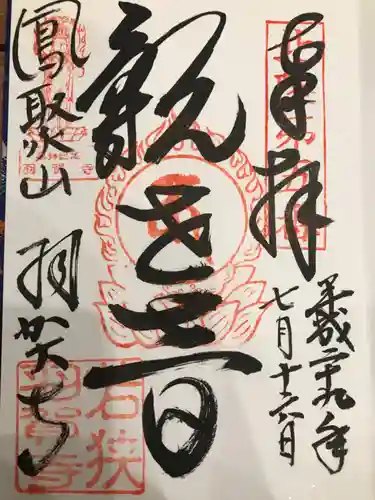 奉拝
平成二十九年
七月十六日
観世音
鳳聚山
羽賀寺
若狭
羽賀寺